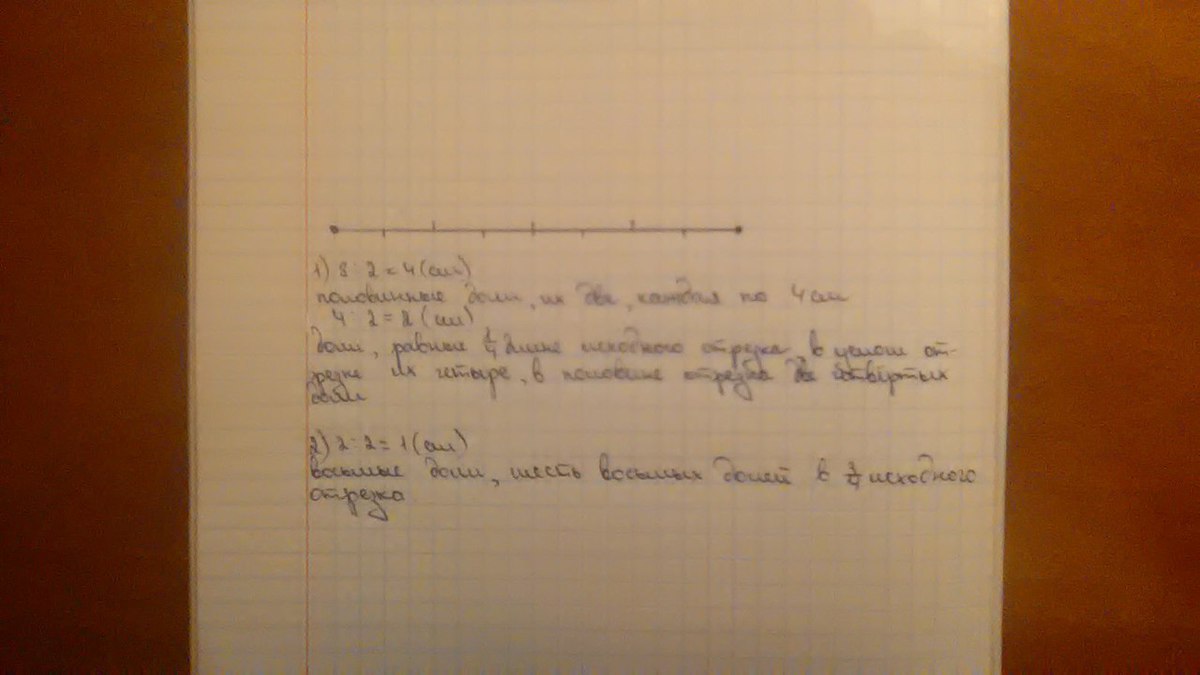 1) 8 : 2 = 4 (см)
половинные доли, их две, каждая по 4 см
4 : 2 = 2 (см)
доли, равные 1/4 длине исходного отрезка, в целом от-
резке их четыре, в половине отрезка две четвёртых
доли
2) 2 : 2 = 1 (см)
восьмые доли, шесть восьмых долей в 3/4 исходного
отрезка